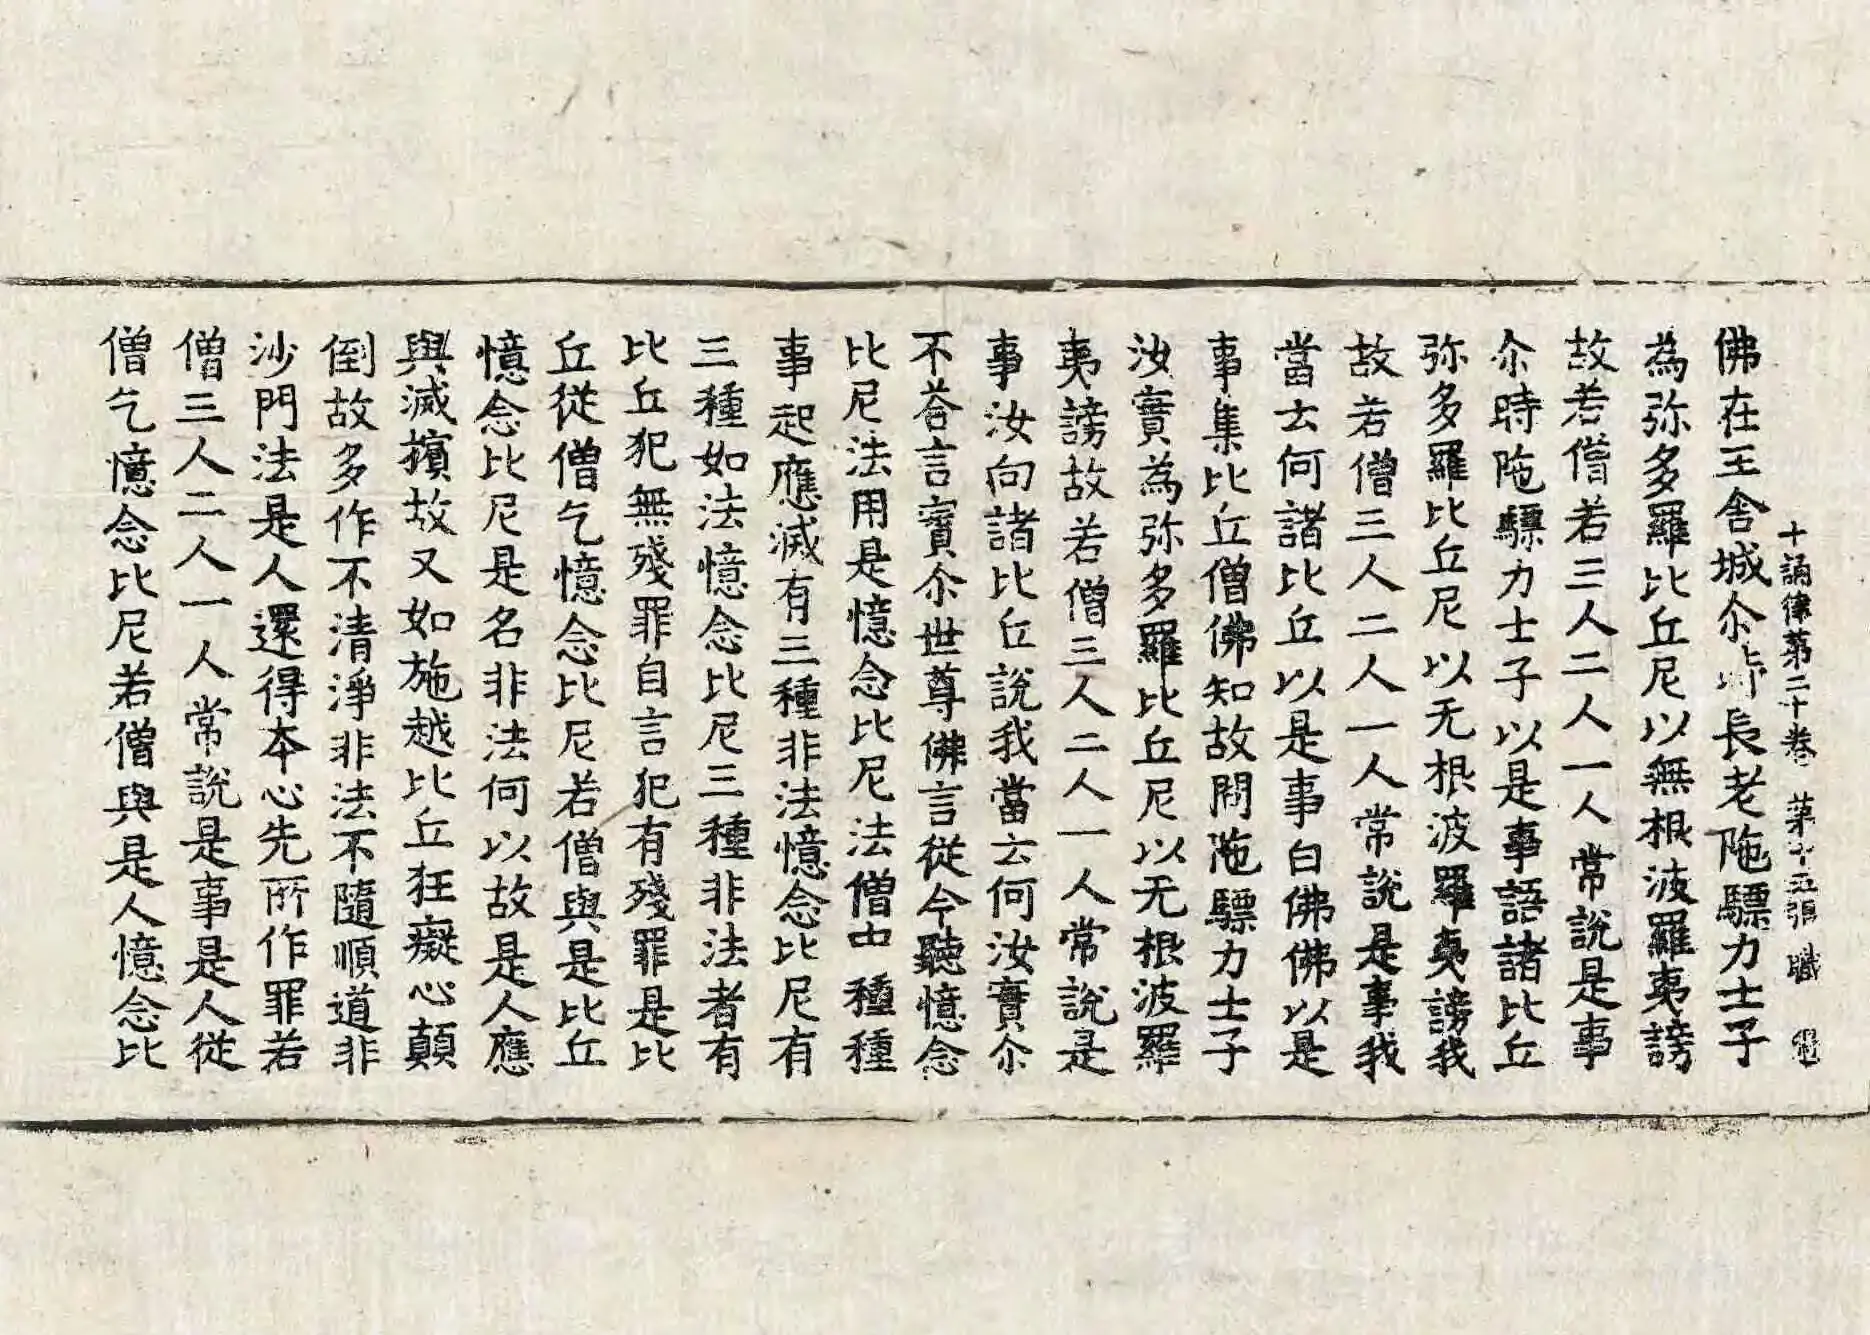 十誦律第二十卷　第十五張　職
佛在王舍城尒時長老陁驃力士子
為弥多羅比丘尼以無根波羅夷謗
故若僧若三人二人一人常説是事
尒時陁驃力士子以是事語諸比丘
弥多羅比丘尼以无根波羅夷謗我
故若僧三人二人一人常説是事我
當云何諸比丘以是事白佛佛以是
事集比丘僧佛知故問陁驃力士子
汝實為弥多羅比丘尼以无根波羅
夷謗故若僧三人二人一人常説是
事汝向諸比丘説我當云何汝實尒
不荅言實尒世尊佛言從今聽憶念
比尼法用是憶念比尼法僧中種種
事起應滅有三種非法憶念比尼有
三種如法憶念比尼三種非法者有
比丘犯無殘罪自言犯有殘罪是比
丘從僧乞憶念比尼若僧與是比丘
憶念比尼是名非法何以故是人應
與滅擯故又如施越比丘狂癡心顛
倒故多作不清淨非法不隨順道非
沙門法是人還得本心先所作罪若
僧三人二人一人常説是事是人從
僧乞憶念比尼若僧與是人憶念比